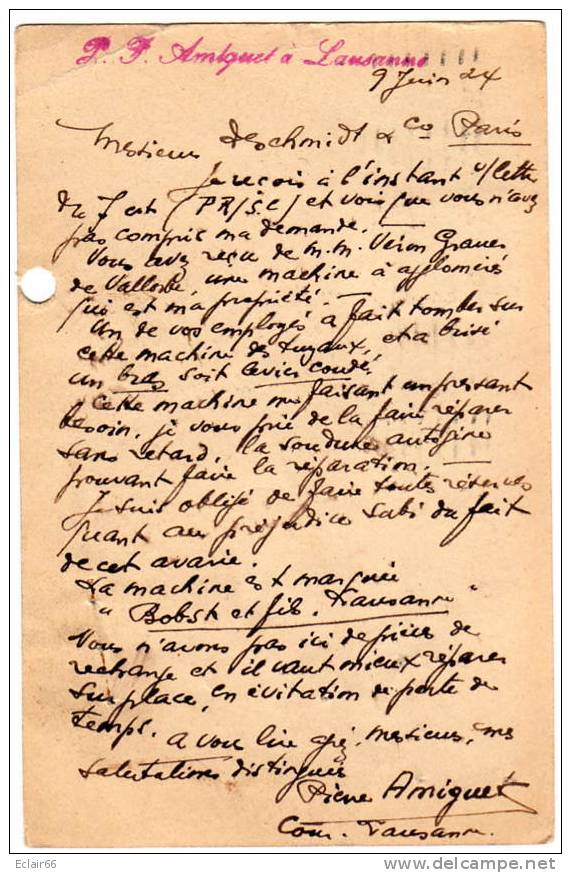 P. F. Amiguet à Lausanne
9 Juin 24
Messieurs Deschmidt & Co Paris
Je reçois à l'instant v/lettre
du 7 ct (PR/S.C) et vois que vous n'avez
pas compris ma demande. —
Vous avez reçu de M.M. Véron Grauer
de Vallorbe, une machine à agglomérés
qui est ma propriété. —
Un de vos employés a fait tomber sur
cette machine des tuyaux, et a brisé
un bras soit levier coudé.
Cette machine me faisant un pressant
besoin, je vous prie de la faire réparer
sans retard, la soudure autogène
pouvant faire la réparation. —
Je suis obligé de faire toutes réserves
quant au préjudice subi du fait
de cet avarie.
La machine est marquée
"Bobst et fils. Lausanne"
Nous n'avons pas ici de pièces de
rechange et il vaut mieux réparer
sur place, en évitation de perte de
temps.
A vous lire, Messieurs, mes
salutations distinguées
Pierre Amiguet
Lausanne.
Eclair66
delcampe.net